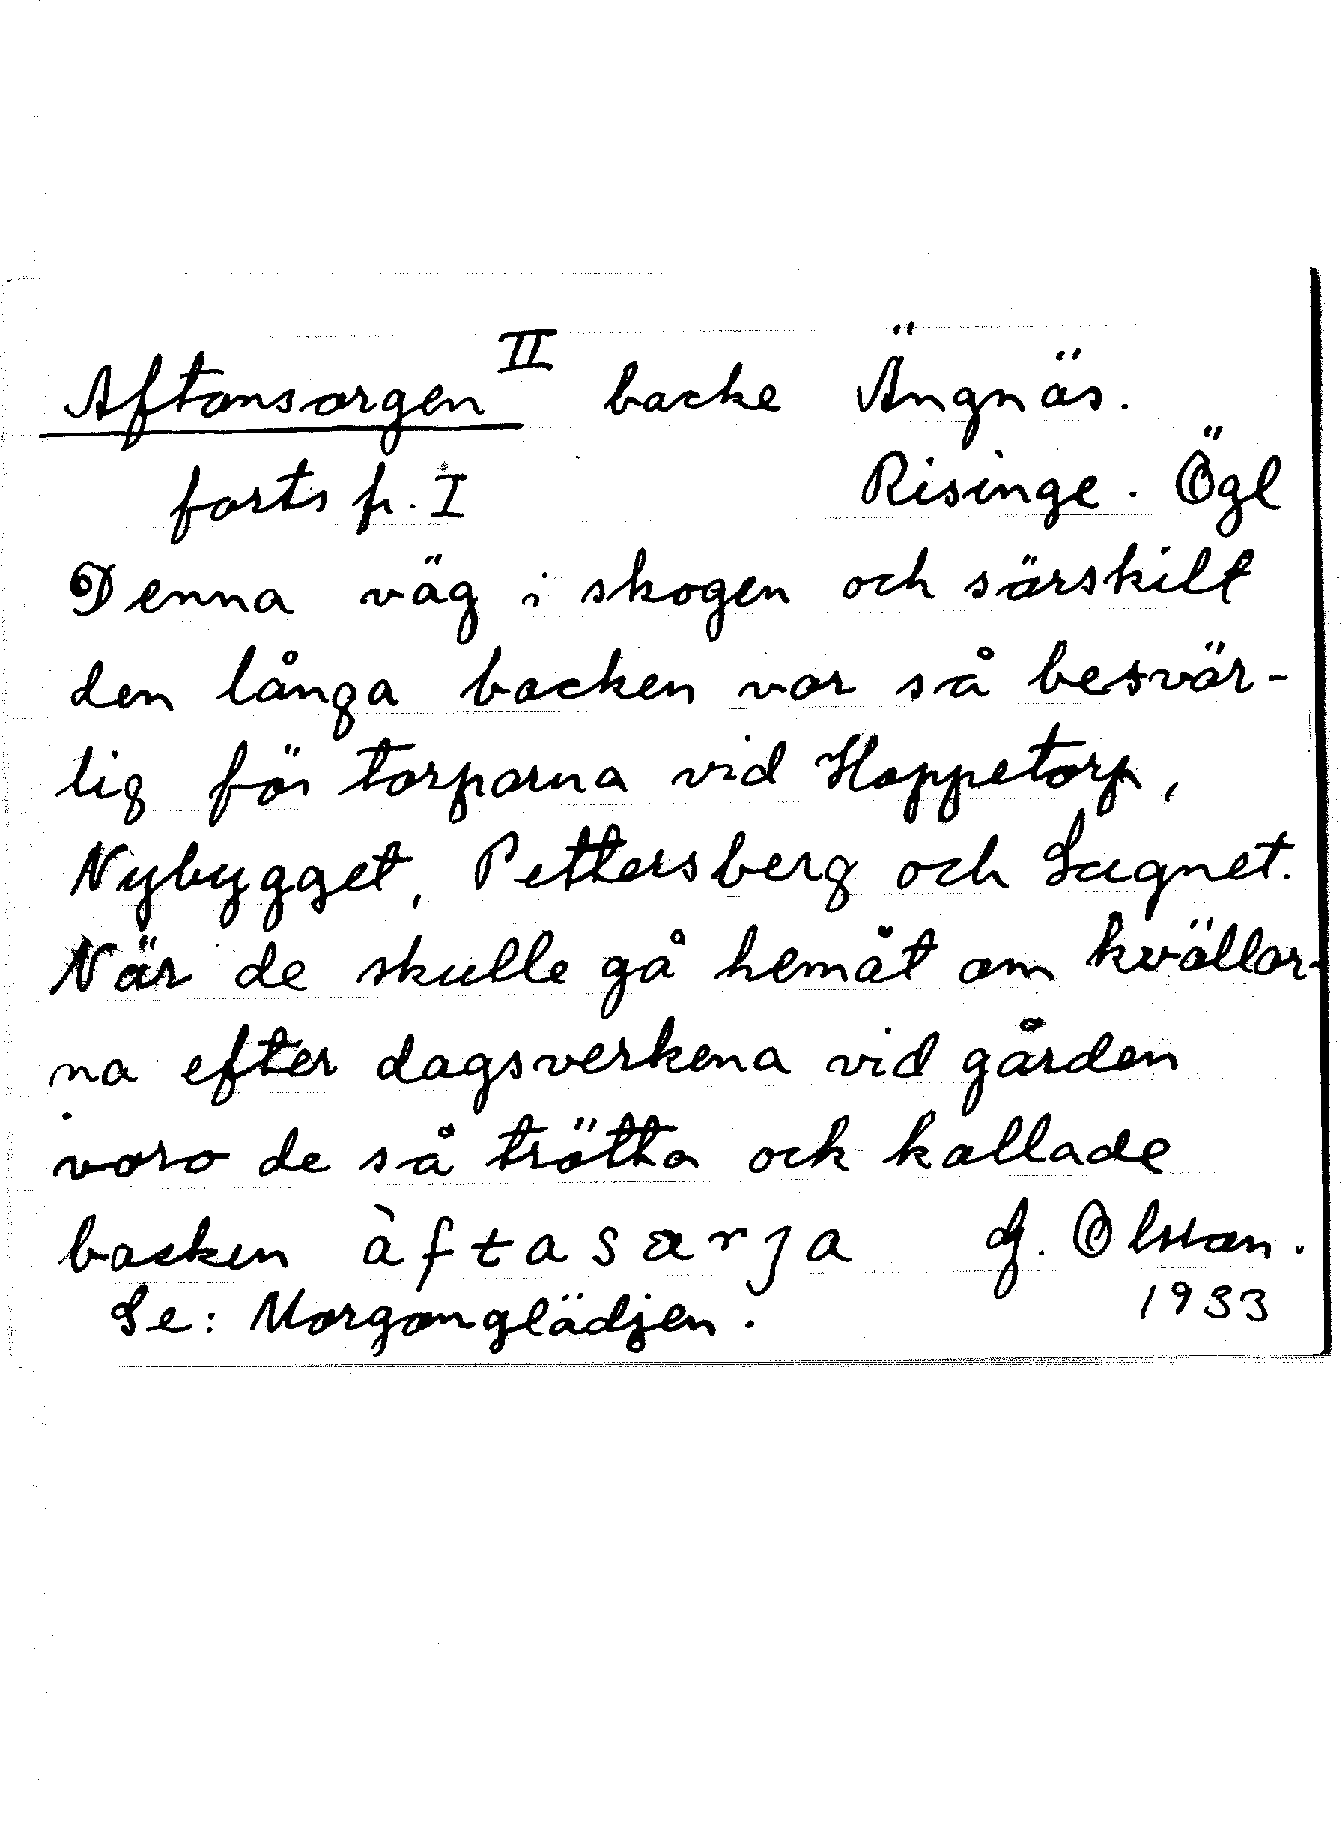 Aftonsorgen II backe Ängnäs.
forts fr. I Risinge. Ögl
Denna väg i skogen och särskilt
den långa backen var så besvär-
lig för torparna vid Hoppetorp,
Nybygget, Pettersberg och Lugnet.
När de skulle gå hemåt om kvällar-
na efter dagsverkena vid gården
voro de så trötta och kallade
backen àftasarja G. Olsson.
Se: Morgonglädjen. 1933